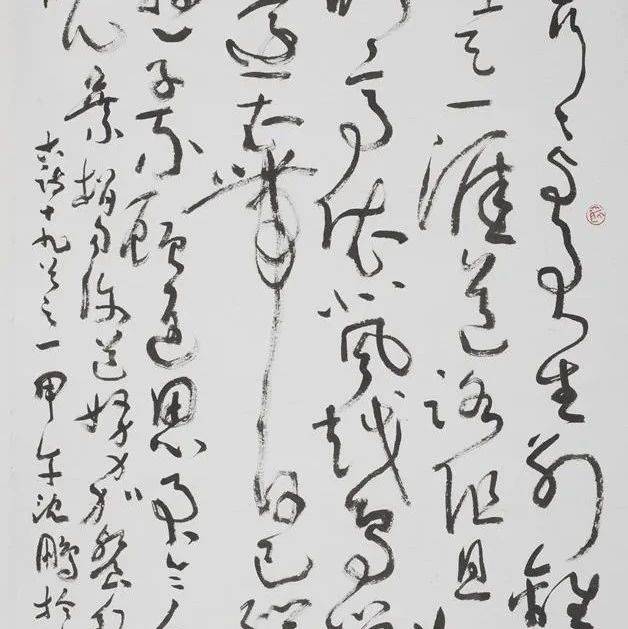 行々与君生别離
天一涯道路阻且
馬依北風越鳥巢
遠衣帶日已緩
子不顧返思君令人
棄捐勿復道努力加餐飯
古詩十九首之一甲午沈鵬於